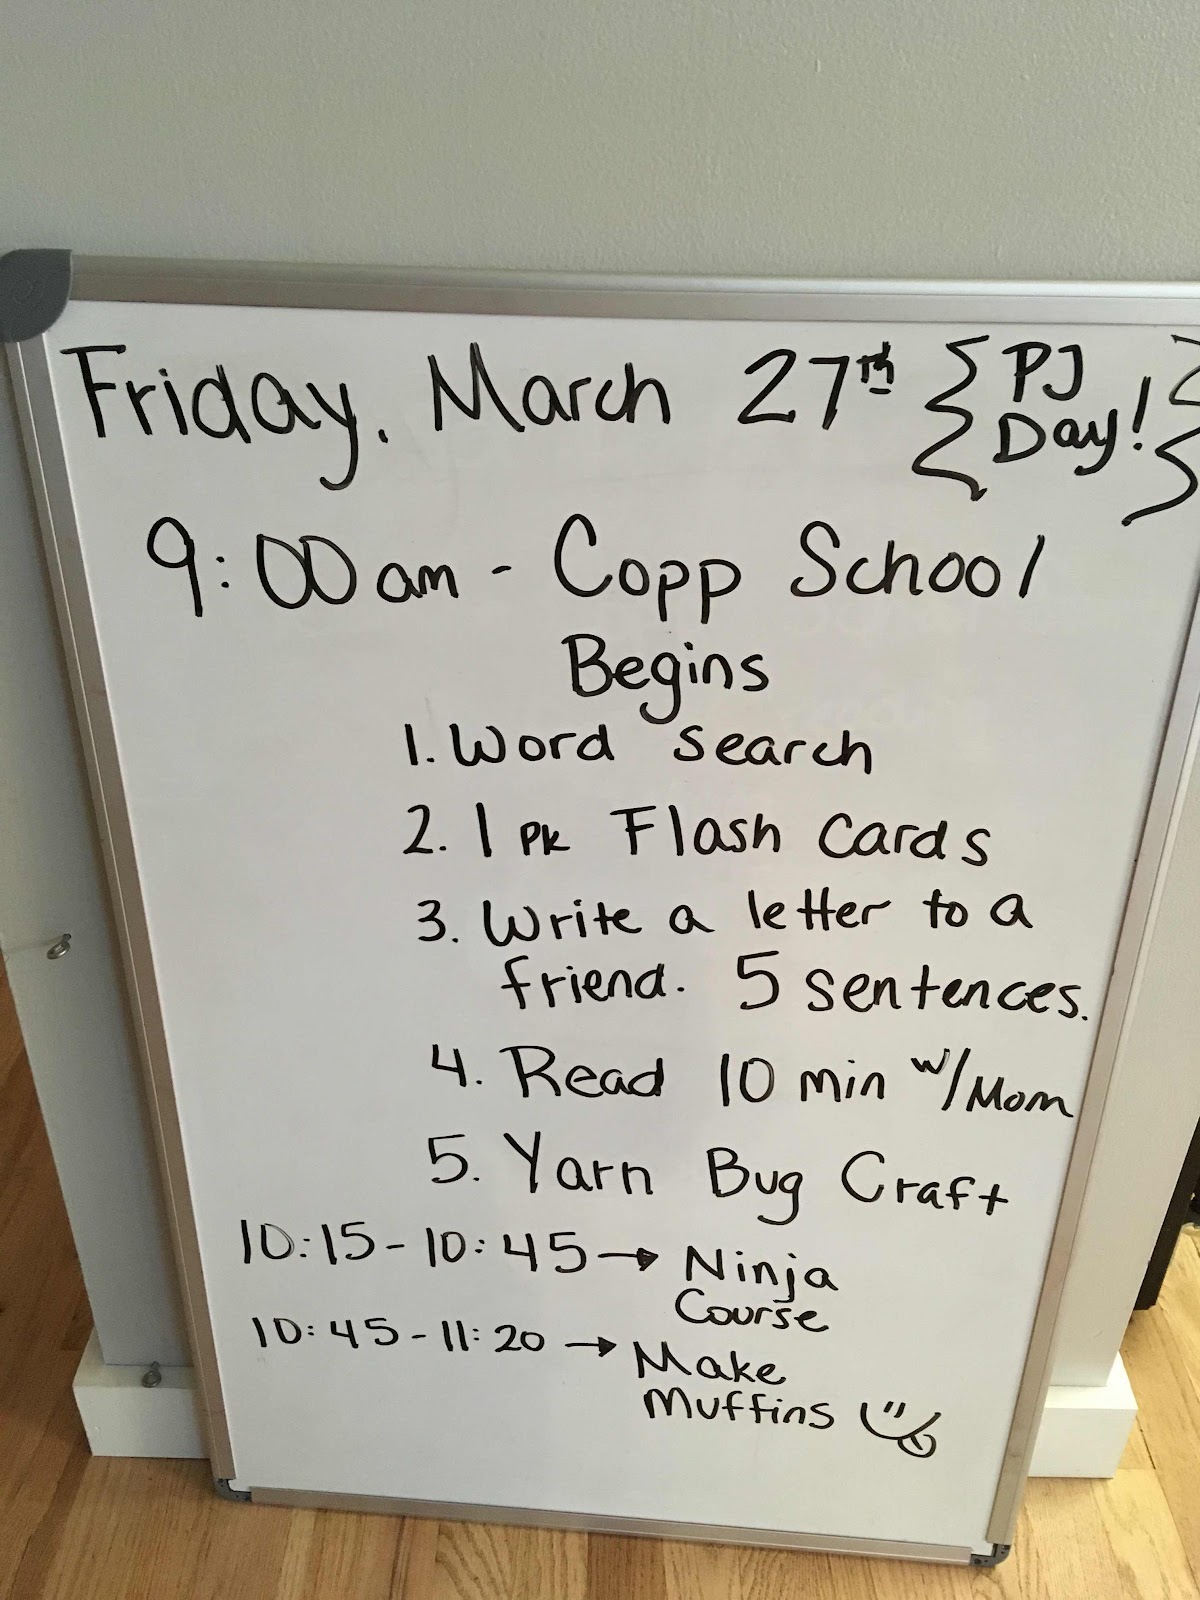 Friday, March 27th { PJ Day! }
9:00am - Copp School
Begins
1. Word search
2. 1 PK Flash cards
3. Write a letter to a
friend. 5 sentences.
4. Read 10 min w/Mom
5. Yarn Bug Craft
10:15-10:45→ Ninja
Course
10:45-11:20 → Make
Muffins